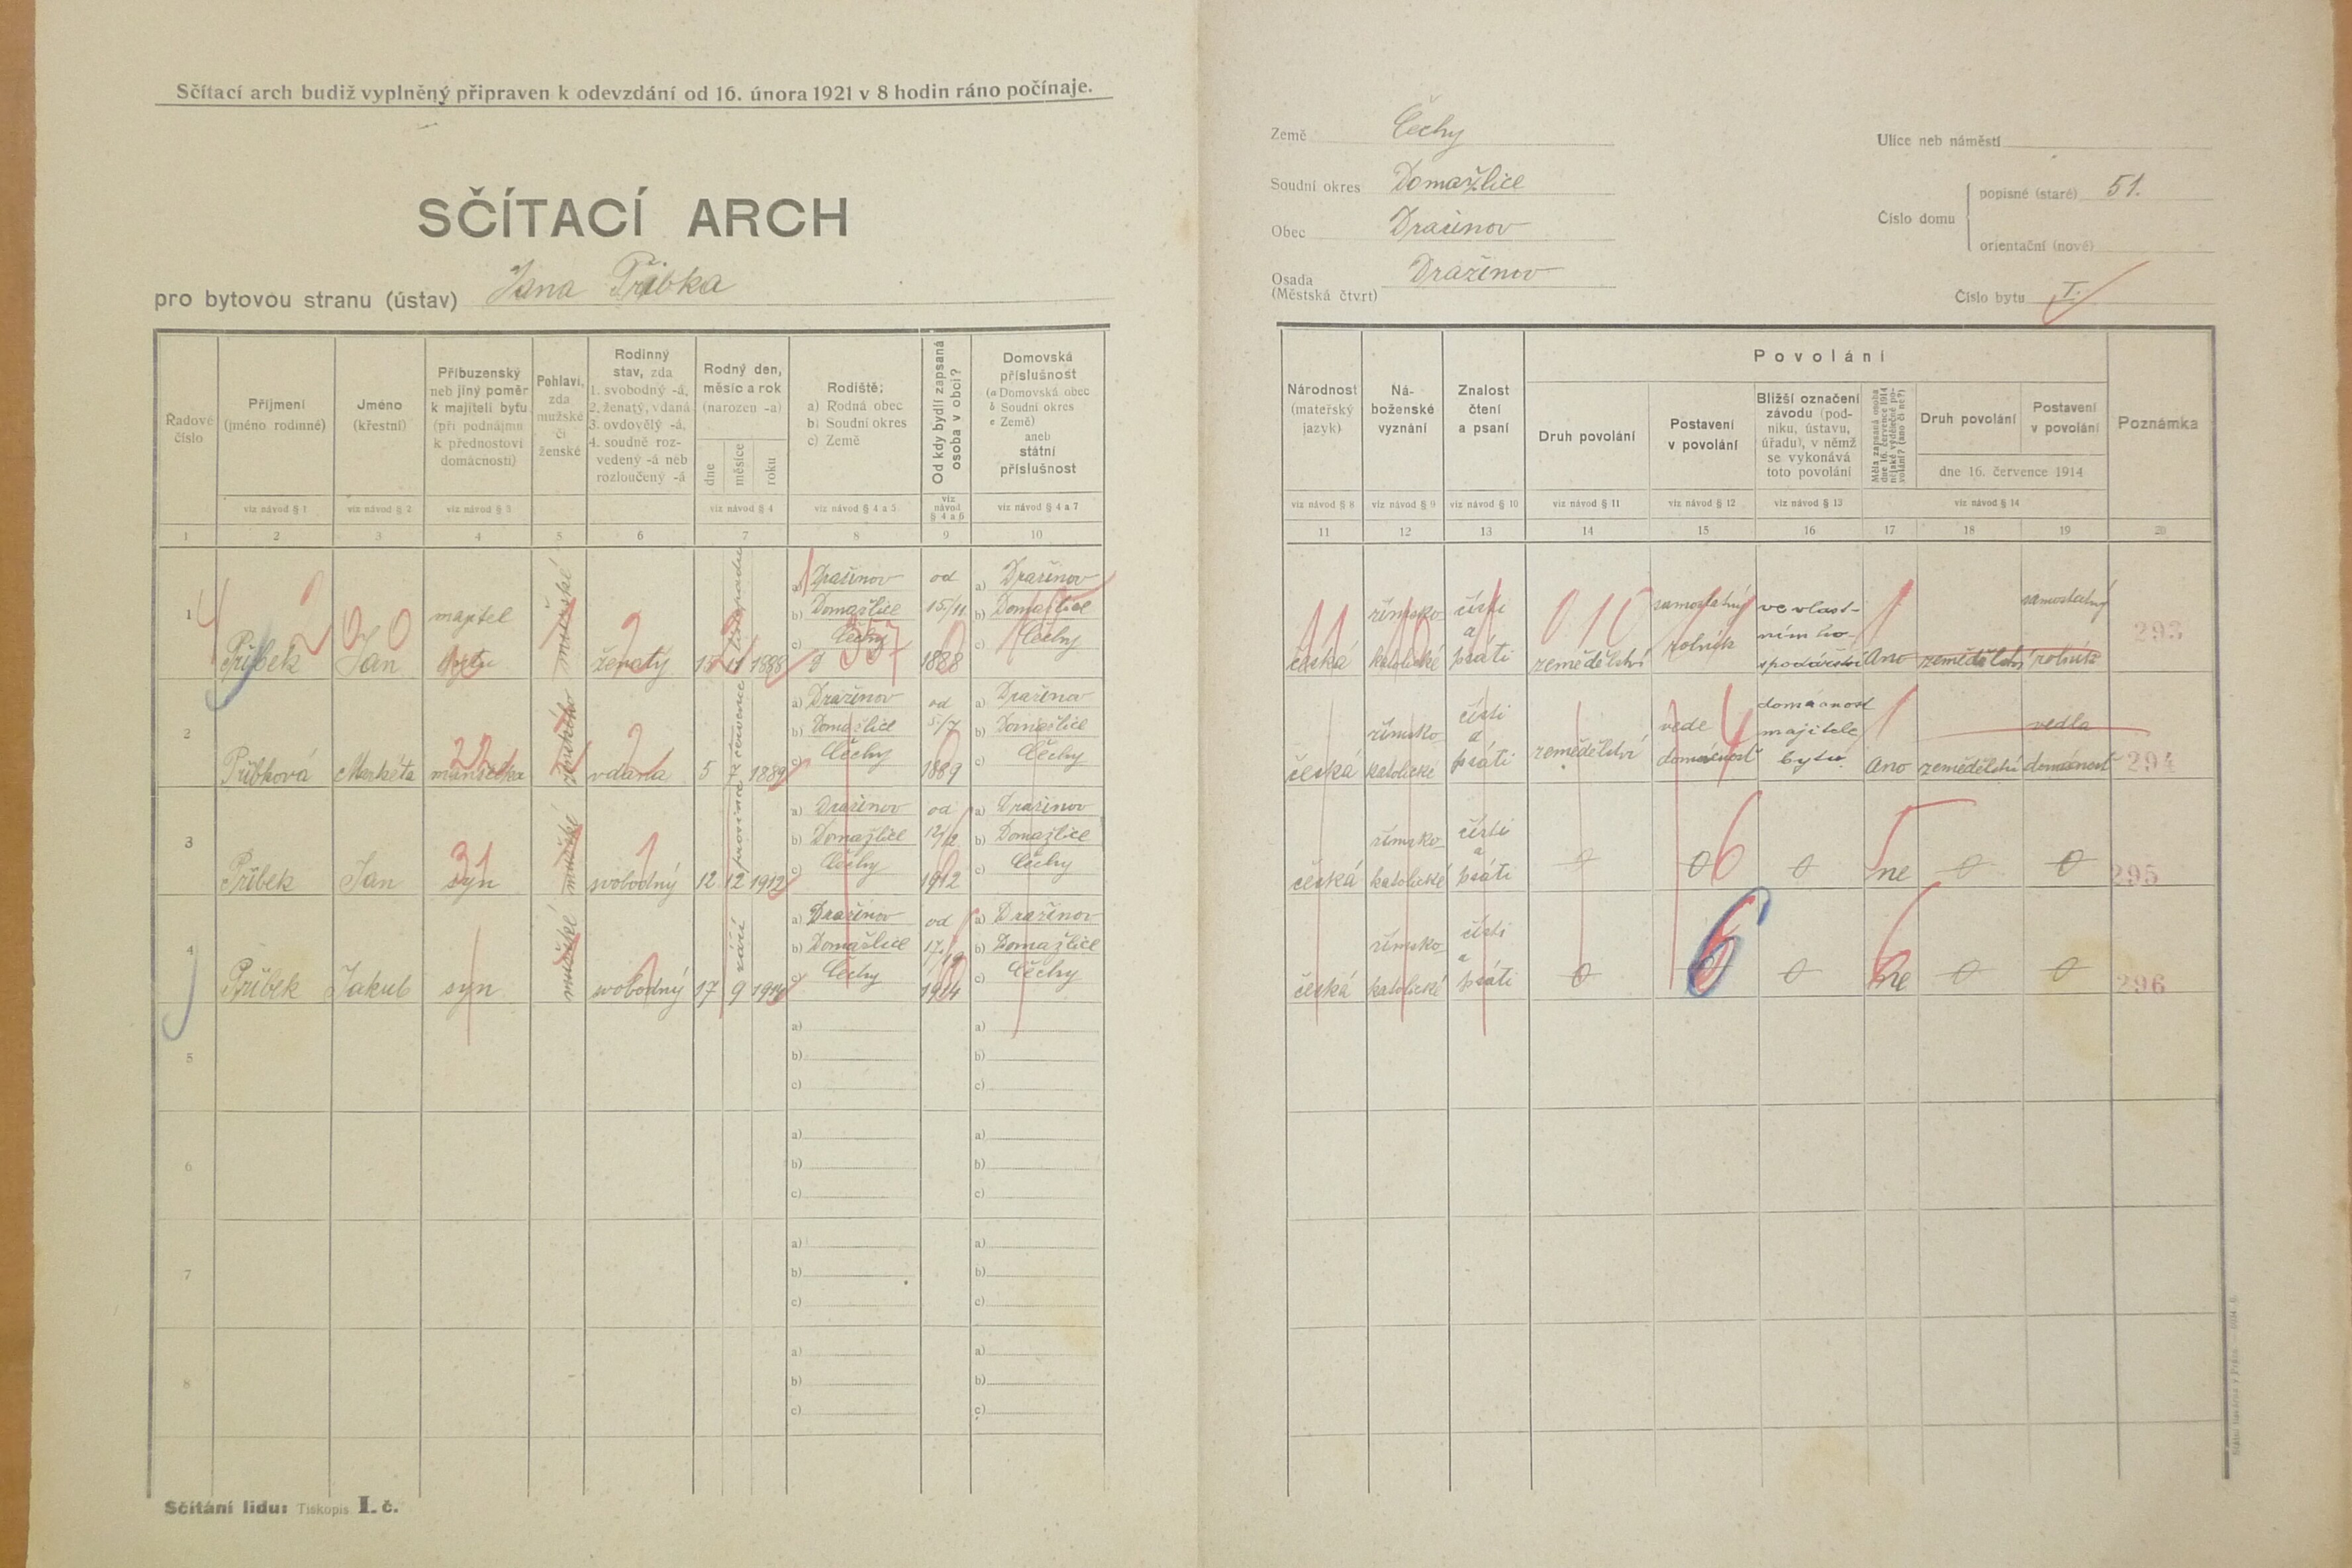 Sčítací arch budiž vyplněný připraven k odevzdání od 16. února 1921 v 8 hodin ráno počínaje.
SČÍTACÍ ARCH
pro bytovou stranu (ústav) Jana Příbka
Řadové číslo
Příjmení
(jméno rodinné)
Jméno
(křestní)
Příbuzenský
neb jiný poměr
k majiteli bytu
(při podnájmu
k přednostovi
domácnosti)
Pohlaví,
zda
mužské
či
ženské
Rodinný
stav, zda
1. svobodný -á,
2. ženatý, vdaná
3. ovdovělý -á,
4. soudně roz-
vedený -á neb
rozloučený -á
Rodný den,
měsíc a rok
(narozen -a)
dne
měsíce
roku
Rodiště:
a) Rodná obec
b) Soudní okres
c) Země
Od kdy bydlí zapsaná
osoba v obci?
Domovská
příslušnost
(a Domovská obec
b Soudní okres
c Země)
aneb
státní
příslušnost
viz návod § 1
viz návod § 2
viz návod § 3
viz návod § 4
viz návod § 4 a 5
viz
návod
§ 4 a 6
viz návod § 4 a 7
1 2 3 4 5 6 7 8 9 10
1
Příbek
Jan
majitel
bytu
mužské
ženatý
15 11 listopadu 1888
a) Dražinov
b) Domažlice
c) Čechy
357
od
15./11
1888
a) Dražinov
b) Domažlice
c) Čechy
2
Příbková
Markéta
manželka
22
vdaná
5 7 července 1889
a) Dražinov
b) Domažlice
c) Čechy
od
5./7
1889
a) Dražinov
b) Domažlice
c) Čechy
3
Příbek
Jan
syn
31
mužské
svobodný
12 12 prosince 1912
a) Dražinov
b) Domažlice
c) Čechy
od
12/12
1912
a) Dražinov
b) Domažlice
c) Čechy
4
Příbek
Jakub
syn
mužské
svobodný
17 9 září 1914
a) Dražinov
b) Domažlice
c) Čechy
od
17./9
1914
a) Dražinov
b) Domažlice
c) Čechy
5
a) a)
b) b)
c) c)
6
a) a)
b) b)
c) c)
7
a) a)
b) b)
c) c)
8
a) a)
b) b)
c) c)
Sčítání lidu: Tiskopis I. č.
Země Čechy
Soudní okres Domažlice
Obec Dražinov
Osada
(Městská čtvrt) Dražinov
Ulice neb náměstí
Číslo domu
popisné (staré) 51.
orientační (nové)
Číslo bytu I.
Národnost
(mateřský
jazyk)
Ná-
boženské
vyznání
Znalost
čtení
a psaní
Povolání
Druh povolání
Postavení
v povolání
Bližší označení
závodu (pod-
niku, ústavu,
úřadu), v němž
se vykonává
toto povolání
Měla zapsaná osoba
dne 16. července 1914
nějaké výdělečné po-
volání? (ano či ne?)
Druh povolání
Postavení
v povolání
dne 16. července 1914
Poznámka
viz návod § 8
viz návod § 9
viz návod § 10
viz návod § 11
viz návod § 12
viz návod § 13
viz návod § 14
11 12 13 14 15 16 17 18 19 20
česká
římsko
katolické
čísti
a
psáti
zemědělství
samostatný
rolník
ve vlast-
ním ho-
spodářství
Ano
zemědělství
samostatný
rolník
293
česká
římsko
katolické
čísti
a
psáti
zemědělství
vede
domácnost
domácnost
majitele
bytu
Ano
zemědělství
vedla
domácnost
294
česká
římsko
katolické
čísti
a
psáti
0
0
6
0
ne
0
0
295
česká
římsko
katolické
čísti
a
psáti
0
6
0
ne
0
0
296